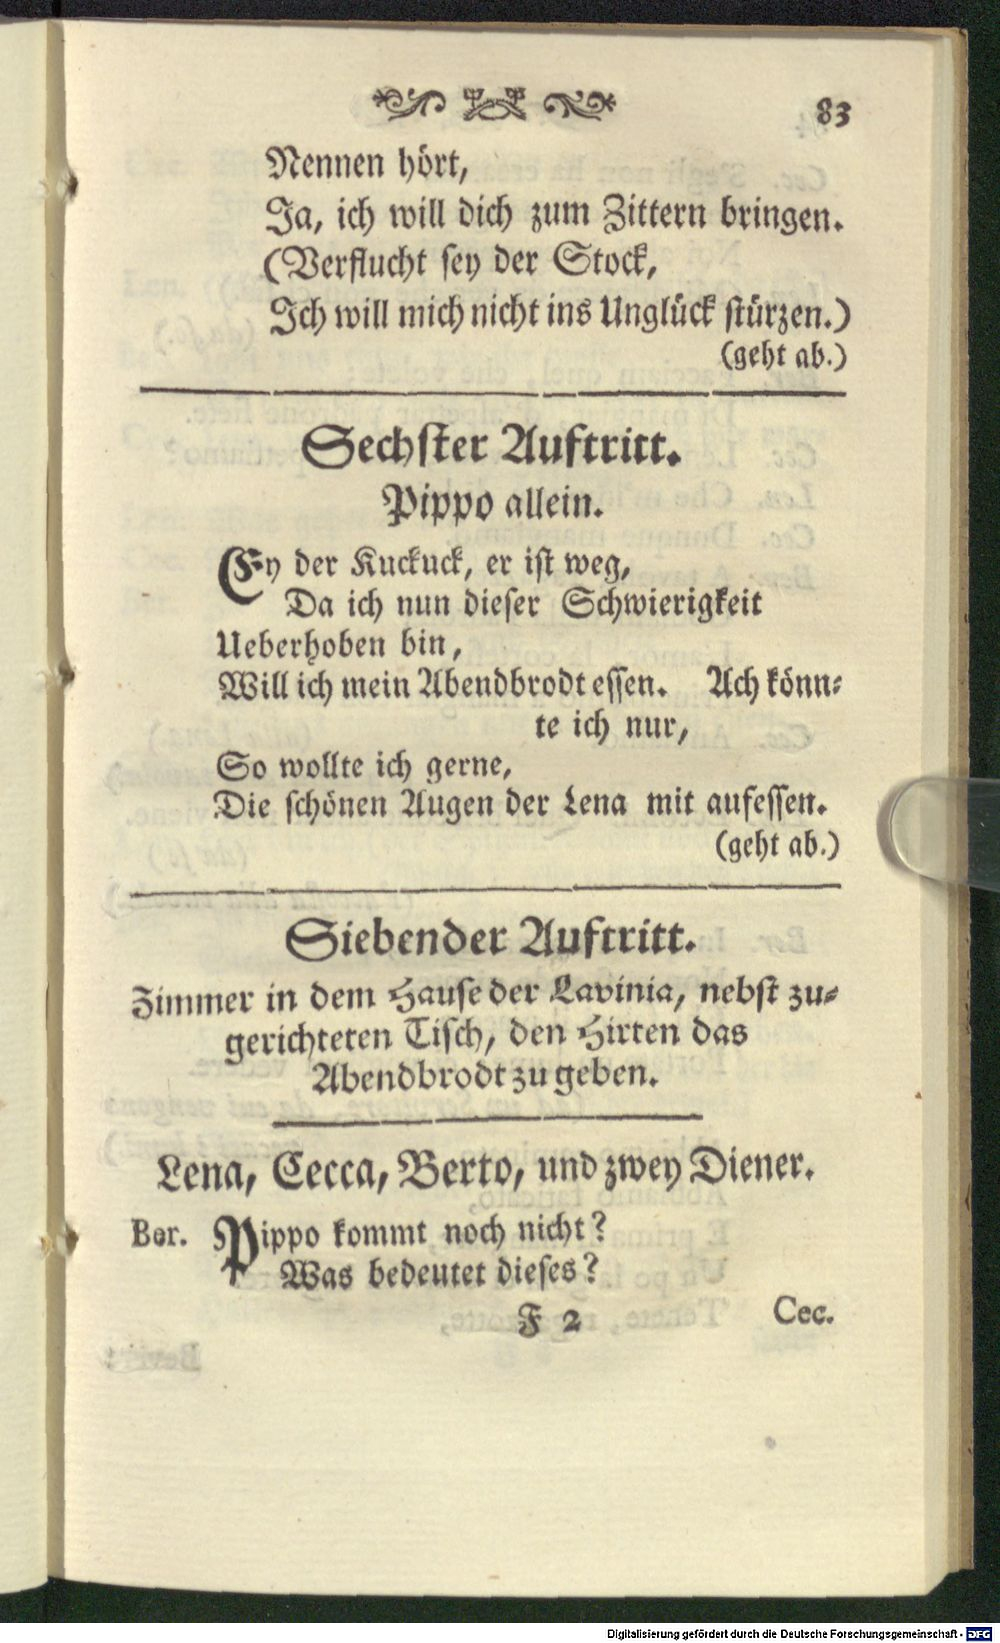 83
Nennen hört,
Ja, ich will dich zum Zittern bringen.
(Verflucht sey der Stock,
Ich will mich nicht ins Unglück stürzen.)
(geht ab.)
Sechster Auftritt.
Pippo allein.
Ey der Kuckuck, er ist weg,
Da ich nun dieser Schwierigkeit
Ueberhoben bin,
Will ich mein Abendbrodt essen. Ach könn⸗
te ich nur,
So wollte ich gerne,
Die schönen Augen der Lena mit aufessen.
(geht ab.)
Siebender Auftritt.
Zimmer in dem Hause der Lavinia, nebst zu⸗
gerichteten Tisch, den Hirten das
Abendbrodt zu geben.
Lena, Cecca, Berto, und zwey Diener.
Ber. Pippo kommt noch nicht?
Was bedeutet dieses?
F 2
Cec.
Digitalisierung gefördert durch die Deutsche Forschungsgemeinschaft - DFG